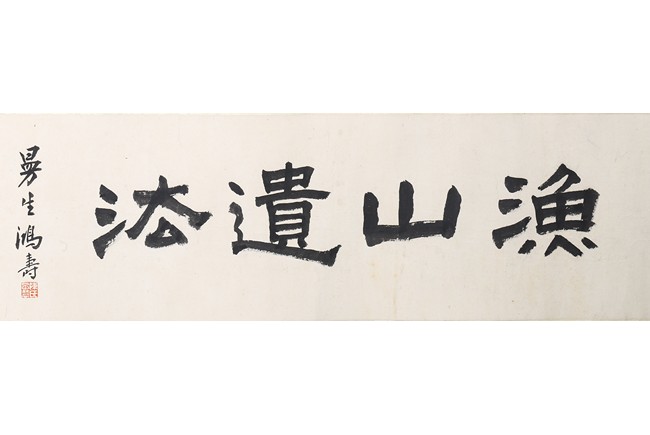 漁山遺法
曼生鴻壽